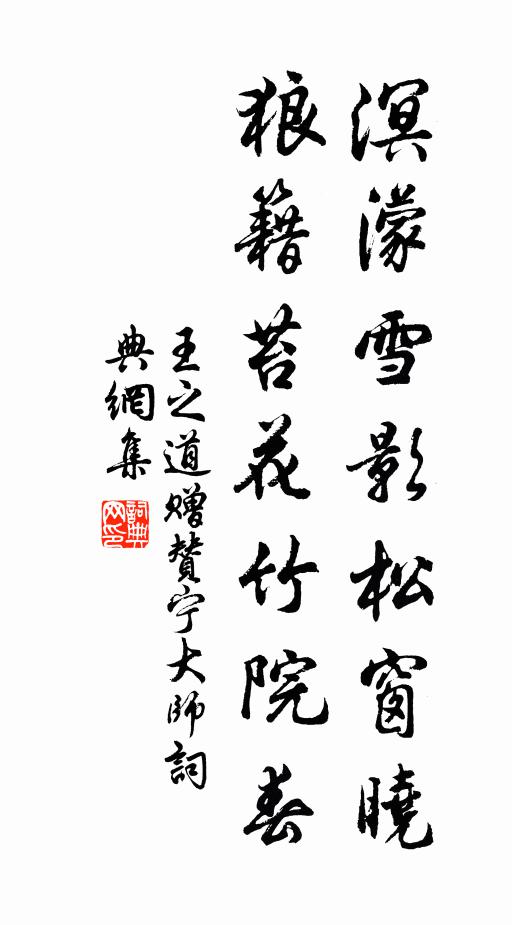 溟濛雪影松窗曉
狼籍苔花竹院春
王之道贈贊宁大師詞
典網集
詞典网印